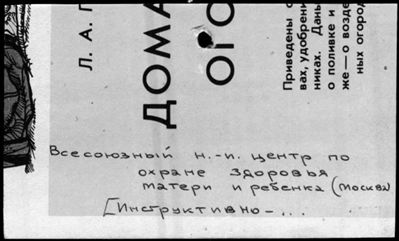 Л. А. П
ДОМА
ОГО
Приведены с
вах, удобрени
никах. Даны
о поливке и
же — о возде
ных огород
Всесоюзный н.-и. центр по
охране здоровья
матери и ребенка (Москва)
[Инструктивно-...